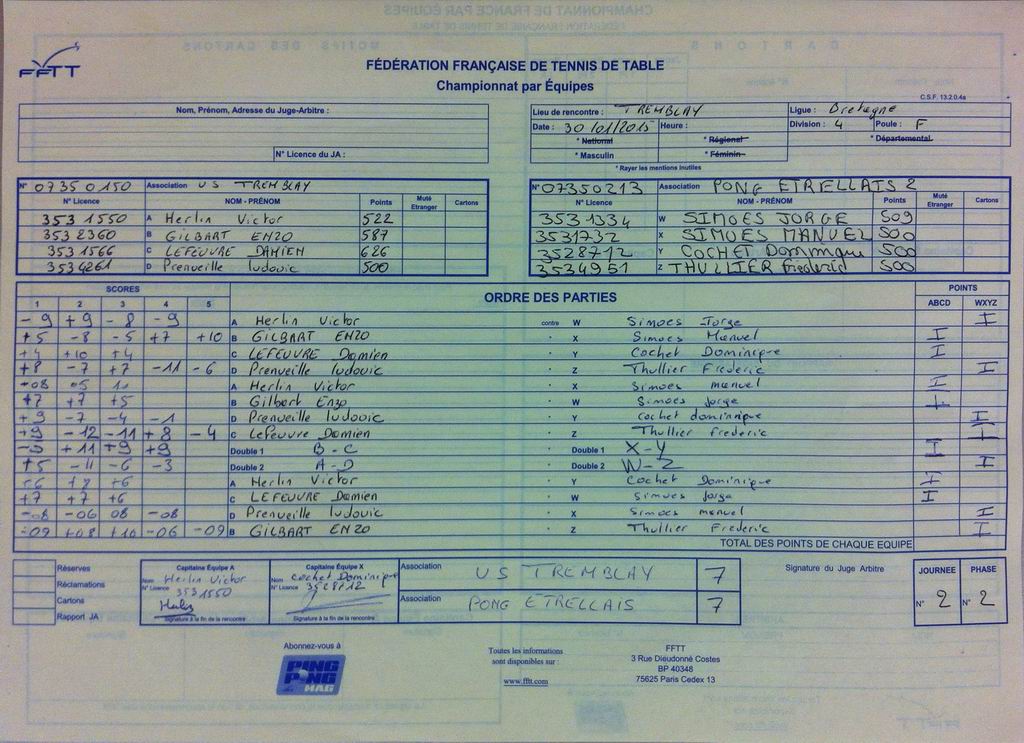 FFTT
FÉDÉRATION FRANÇAISE DE TENNIS DE TABLE
Championnat par Équipes
C.S.F. 13.2.0.4a
Nom, Prénom, Adresse du Juge-Arbitre :
N° Licence du JA :
Lieu de rencontre : TREMBLAY Ligue : Bretagne
Date : 30/01/2015 Heure : Division : 4 Poule : F
* National * Régional * Départemental
* Masculin * Féminin
* Rayer les mentions inutiles
N° 07350150 Association US TREMBLAY
N° Licence NOM - PRÉNOM Points Muté Etranger Cartons
353 1550 A Herlin Victor 522
353 2360 B GILBART ENZO 587
353 1566 C LEFEUVRE DAMIEN 626
353 4261 D Prenveille ludovic 500
N° 07350213 Association PONG ETRELLAIS 2
N° Licence NOM - PRÉNOM Points Muté Etranger Cartons
3531334 W SIMOES JORGE 509
3531732 X SIMOES MANUEL 500
3528712 Y COCHET Dominique 500
3534951 Z THULLIER Frederic 500
SCORES ORDRE DES PARTIES POINTS
1 2 3 4 5 ABCD WXYZ
-9 +9 -8 -9 A Herlin Victor contre W Simoes Jorge I
+5 -8 -5 +7 +10 B GILBART ENZO X Simoes Manuel I
+4 +10 +4 C LEFEUVRE Damien Y Cochet Dominique I
+8 -7 +7 -11 -6 D Prenveille ludovic Z Thullier Frederic I
+08 A Herlin Victor X Simoes manuel I
+7 +7 +5 B Gilbart Enzo W Simoes Jorge I
+9 -7 -4 -1 D Prenveille ludovic Y Cochet dominique I
+9 -12 -11 +8 -4 C Lefeuvre Damien Z Thullier frederic I
-9 +11 +9 +9 Double 1 B - C Double 1 X - Y I
+5 -11 -6 -3 Double 2 A - D Double 2 W - Z I
+6 +8 +6 A Herlin Victor Y Cochet Dominique I
+7 +7 +6 C LEFEUVRE Damien W Simoes Jorge I
-08 -06 08 -08 D Prenveille ludovic X Simoes manuel I
-09 +08 +10 -06 -09 B GILBART ENZO Z Thullier Frederic I
TOTAL DES POINTS DE CHAQUE EQUIPE
Réserves
Réclamations
Cartons
Rapport JA
Capitaine Équipe A
Nom Herlin Victor
N° Licence 3531550
Signature à la fin de la rencontre
Capitaine Équipe X
Nom Cochet Dominique
N° Licence 3528712
Signature à la fin de la rencontre
Association US TREMBLAY 7
Association PONG ETRELLAIS 7
Signature du Juge Arbitre
JOURNEE PHASE
N° 2 N° 2
Abonnez-vous à
PING PONG MAG
Toutes les informations
sont disponibles sur :
www.fftt.com
FFTT
3 Rue Dieudonné Costes
BP 40348
75625 Paris Cedex 13